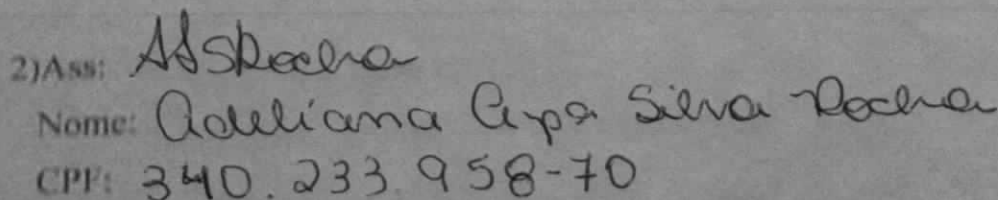 2)Ass: AdSRocha
Nome: Adeliana Apa Silva Rocha
CPF: 340.233.958-70